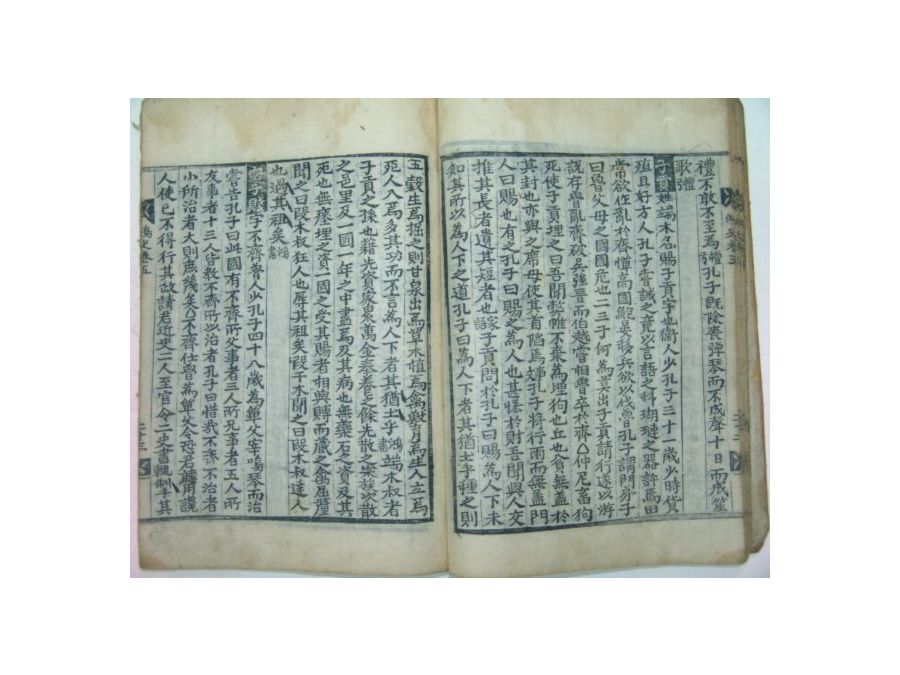 禮不敢不至焉禮孔子旣除喪彈琴而不成聲十日而成笙
歌禮
子貢姓端木名賜子貢字也衛人少孔子三十一歲少時貨
殖且好方人孔子嘗誡之竟以言語之科瑚璉之器許焉田
常欲作亂於齊憚高國鮑晏移兵欲以伐魯孔子謂門弟子
曰魯父母之國國危也二三子何爲莫出子貢請行遂以游
說存魯亂齊破吳強晉而伯越嘗相魯卒於齊仲尼畜狗
死使子貢埋之曰吾聞弊帷不棄爲埋狗也丘也貧無蓋於
其封也亦與之席毋使其首陷焉孔子將行雨而無蓋門
人曰賜也有之孔子曰賜之爲人也甚悋於財吾聞與人交
推其長者違其短者也子貢問於孔子曰賜爲人下未
知其所以爲人下之道孔子曰爲人下者其猶土乎種之則
五穀生焉掘之則甘泉出焉草木植焉禽獸育焉生人立焉
死人入焉多其功而不言爲人下者其猶土乎 端木叔者
子貢之孫也藉先貲家累萬金奉養之餘先散之宗族次散
之邑里及一國一年之中盡焉及其病也無藥石之資及其
死也無瘞埋之資一國之受其賜者相與賻而藏之禽屈釐
聞之曰段木叔狂人也辱其祖矣段干木聞之曰段木叔達人
也過其祖矣
子賤字不齊魯人少孔子四十八歲爲單父宰鳴琴而治
嘗告孔子曰此國有不齊所父事者三人所兄事者五人所
友事者十三人皆敎不齊所以治者孔子曰惜哉不齊不治者
小所治者大則庶幾矣不齊仕魯爲單父令恐君用讒
人使已不得行其政請君近史二人至官令二史書輒制其
鴻史卷五